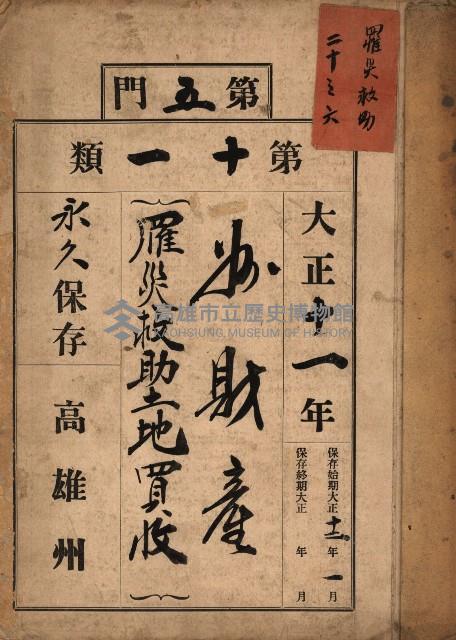 罹災救助
二十三六
第五門
第十一類
大正十一年
保存始期大正十二年一月
保存終期大正 年 月
州財産
(罹災救助土地買收)
永久保存
高雄州
高雄市立歷史博物館
KAOHSIUNG MUSEUM OF HISTORY